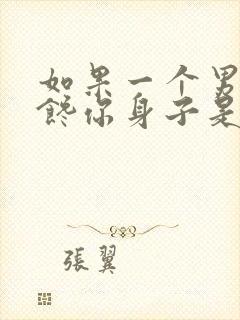 如果一个男
馋你身子是
張翼